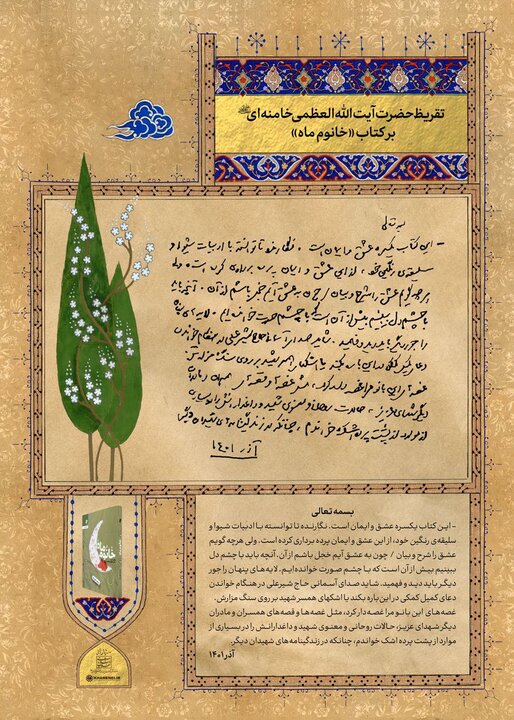 تقریظ حضرت آیت الله العظمی خامنه‌ای
بر کتاب «خانوم ماه»
بسمه تعالی
- این کتاب یکسره عشق و ایمان است. نگارنده تا توانسته با ادبیات شیوا و
سلیقه‌ی رنگین خود، از این عشق و ایمان پرده برداری کرده است. ولی هرچه گویم
عشق را شرح و بیان / چون به عشق آیم خجل باشم از آن. آنچه باید با چشم دل
ببینیم بیش از آن است که با چشم صورت خوانده‌ایم. لایه‌های پنهان را جور
دیگر باید دید و فهمید. شاید صدای آسمانی حاج شیرعلی در هنگام خواندن
دعای کمیل کمکی در این باره بکند یا اشکهای همسر شهید بر روی سنگ مزارش.
غصه‌های این بانو مرا غصه‌دار کرد، مثل غصه‌ها و قصه‌های همسران و مادران
دیگر شهدای عزیز، حالات روحانی و معنوی شهید و داغدارانش را در بسیاری از
موارد از پشت پرده اشک خواندم، چنانکه در زندگینامه‌های شهیدان دیگر.
آذر ۱۴۰۱
بسمه تعالی
- این کتاب یکسره عشق و ایمان است. نگارنده تا توانسته با ادبیات شیوا و
سلیقه‌ی رنگین خود، از این عشق و ایمان پرده برداری کرده است. ولی هرچه گویم
عشق را شرح و بیان / چون به عشق آیم خجل باشم از آن. آنچه باید با چشم دل
ببینیم بیش از آن است که با چشم صورت خوانده‌ایم. لایه‌های پنهان را جور
دیگر باید دید و فهمید. شاید صدای آسمانی حاج شیرعلی در هنگام خواندن
دعای کمیل کمکی در این باره بکند یا اشکهای همسر شهید بر روی سنگ مزارش.
غصه‌های این بانو مرا غصه دار کرد، مثل غصه‌ها و قصه‌های همسران و مادران
دیگر شهدای عزیز، حالات روحانی و معنوی شهید و داغدارانش را در بسیاری از
موارد از پشت پرده اشک خواندم، چنانکه در زندگینامه‌های شهیدان دیگر.
آذر ۱۴۰۱
خانوم ماه
KHAMENEI.IR